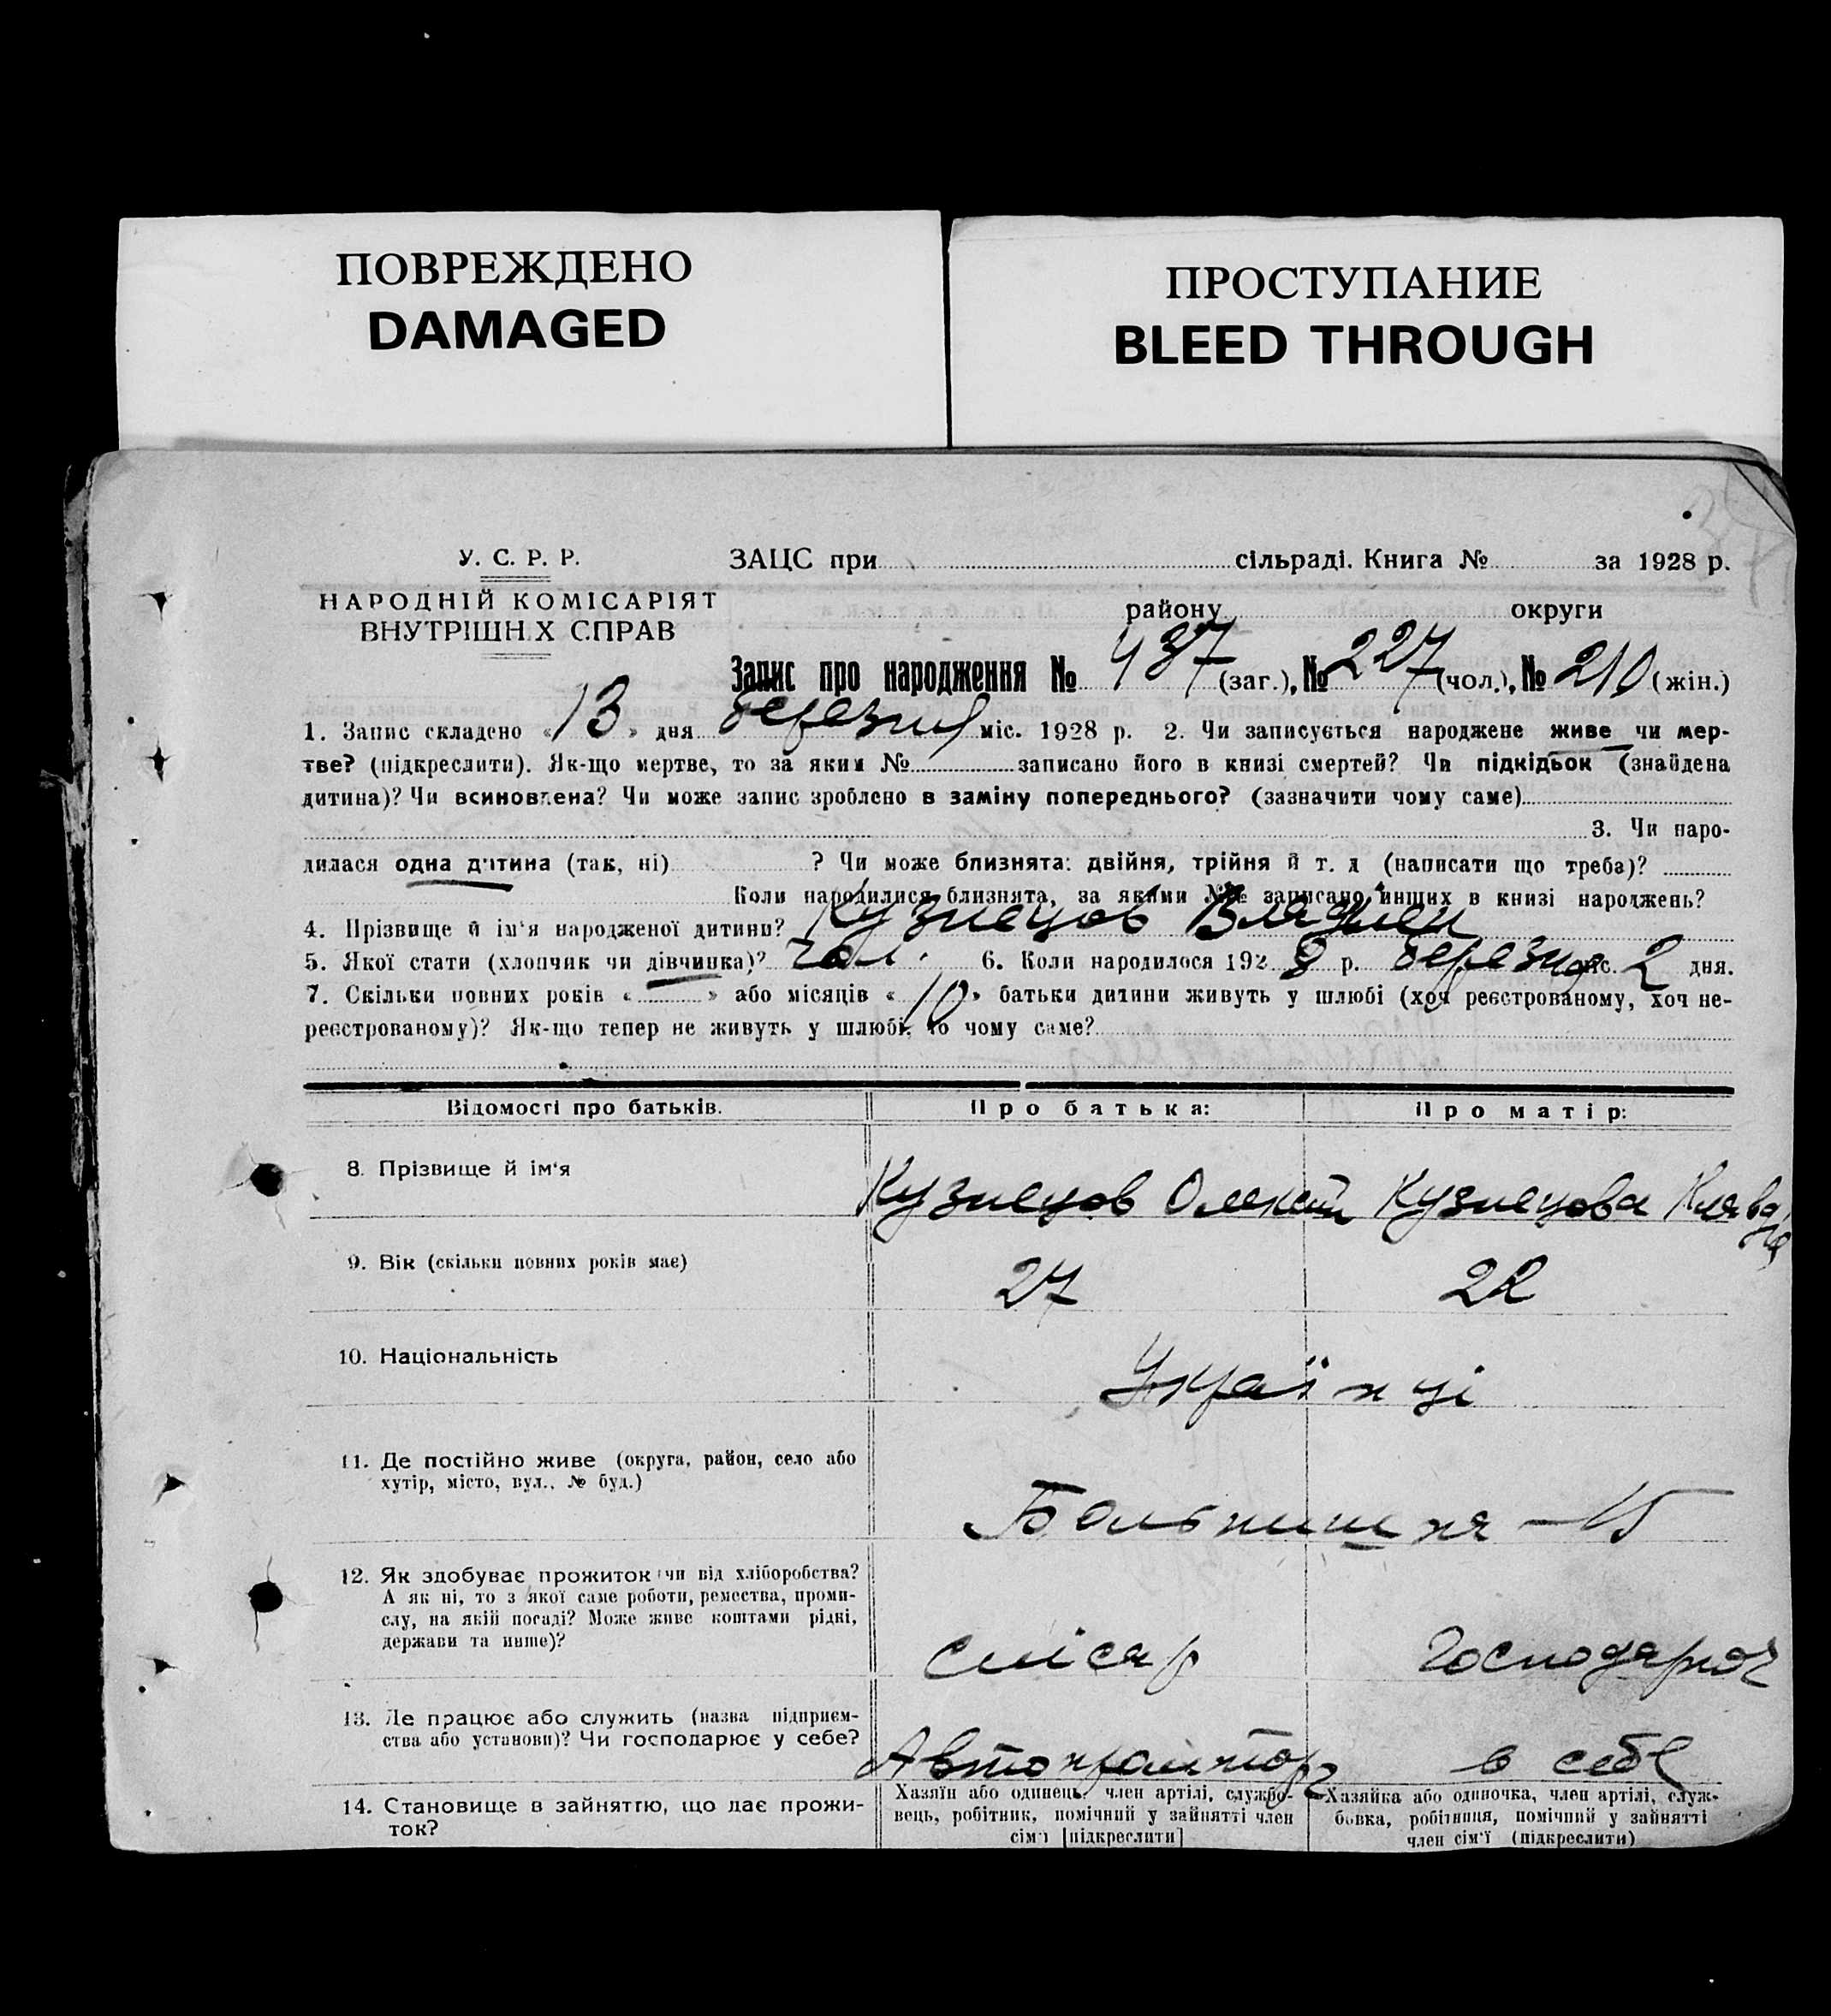 ПОВРЕЖДЕНО
DAMAGED
ПРОСТУПАНИЕ
BLEED THROUGH
У. С. Р. Р.
НАРОДНІЙ КОМІСАРІЯТ
ВНУТРІШН Х СПРАВ
ЗАЦС при сільраді. Книга № за 1928 р.
району округи
Запис про народження № 437 (заг.), № 227 (чол.), № 210 (жін.)
1. Запис складено « 13 » дня березня міс. 1928 р. 2. Чи записується народжене живе чи мер-
тве? (підкреслити). Як-що мертве, то за яким № записано його в книзі смертей? Чи підкідьок (знайдена
дитина)? Чи всиновлена? Чи може запис зроблено в заміну попереднього? (зазначити чому саме)
3. Чи наро-
дилася одна дитина (так, ні) ? Чи може близнята: двійня, трійня й т. д (написати що треба)?
Коли народилися близнята, за якими №№ записано инших в книзі народжень?
4. Прізвище й ім'я народженої дитини? Кузнецов
5. Якої стати (хлопчик чи дівчинка)? чол. 6. Коли народилося 192 8 р. березня міс. 2 дня.
7. Скільки повних років « » або місяців « 10 » батьки дитини живуть у шлюбі (хоч реєстрованому, хоч не-
реєстрованому)? Як-що тепер не живуть у шлюбі, то чому саме?
Відомості про батьків. Про батька: Про матір:
8. Прізвище й ім'я Кузнецов Олексій Кузнецова Клавдія
9. Вік (скільки повних років має) 27 22
10. Національність Українці
11. Де постійно живе (округа, район, село або
хутір, місто, вул., № буд.)
– 15
12. Як здобуває прожиток чи від хліборобства?
А як ні, то з якої саме роботи, ремества, проми-
слу, на якій посаді? Може живе коштами рідні,
держави та инше)?
слюсар господарює
13. Де працює або служить (назва підприєм-
ства або установи)? Чи господарює у себе?
Автопромторг в себе
14. Становище в зайняттю, що дає прожи-
ток?
Хазяїн або одинець, член артілі, службо-
вець, робітник, помічний у зайнятті член
сім'ї [підкреслити]
Хазяйка або одиночка, член артілі, служ-
бовка, робітниця, помічний у зайнятті
член сім'ї (підкреслити)